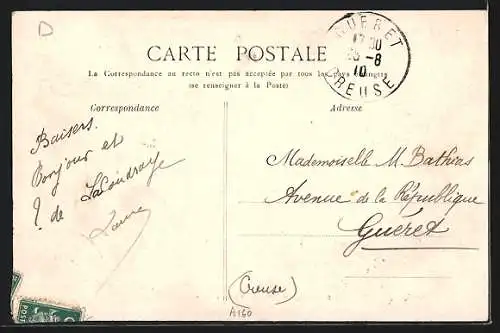 D
GUERET
17 30
-8
10
CREUSE
CARTE POSTALE
La Correspondance au recto n'est pas acceptée par tous les pays étrangers
(se renseigner à la Poste)
Correspondance
Adresse
Baisers.
Bonjour et
de
Mademoiselle M. Bathias
Avenue de la République
Guéret
(Creuse)
A160
POST